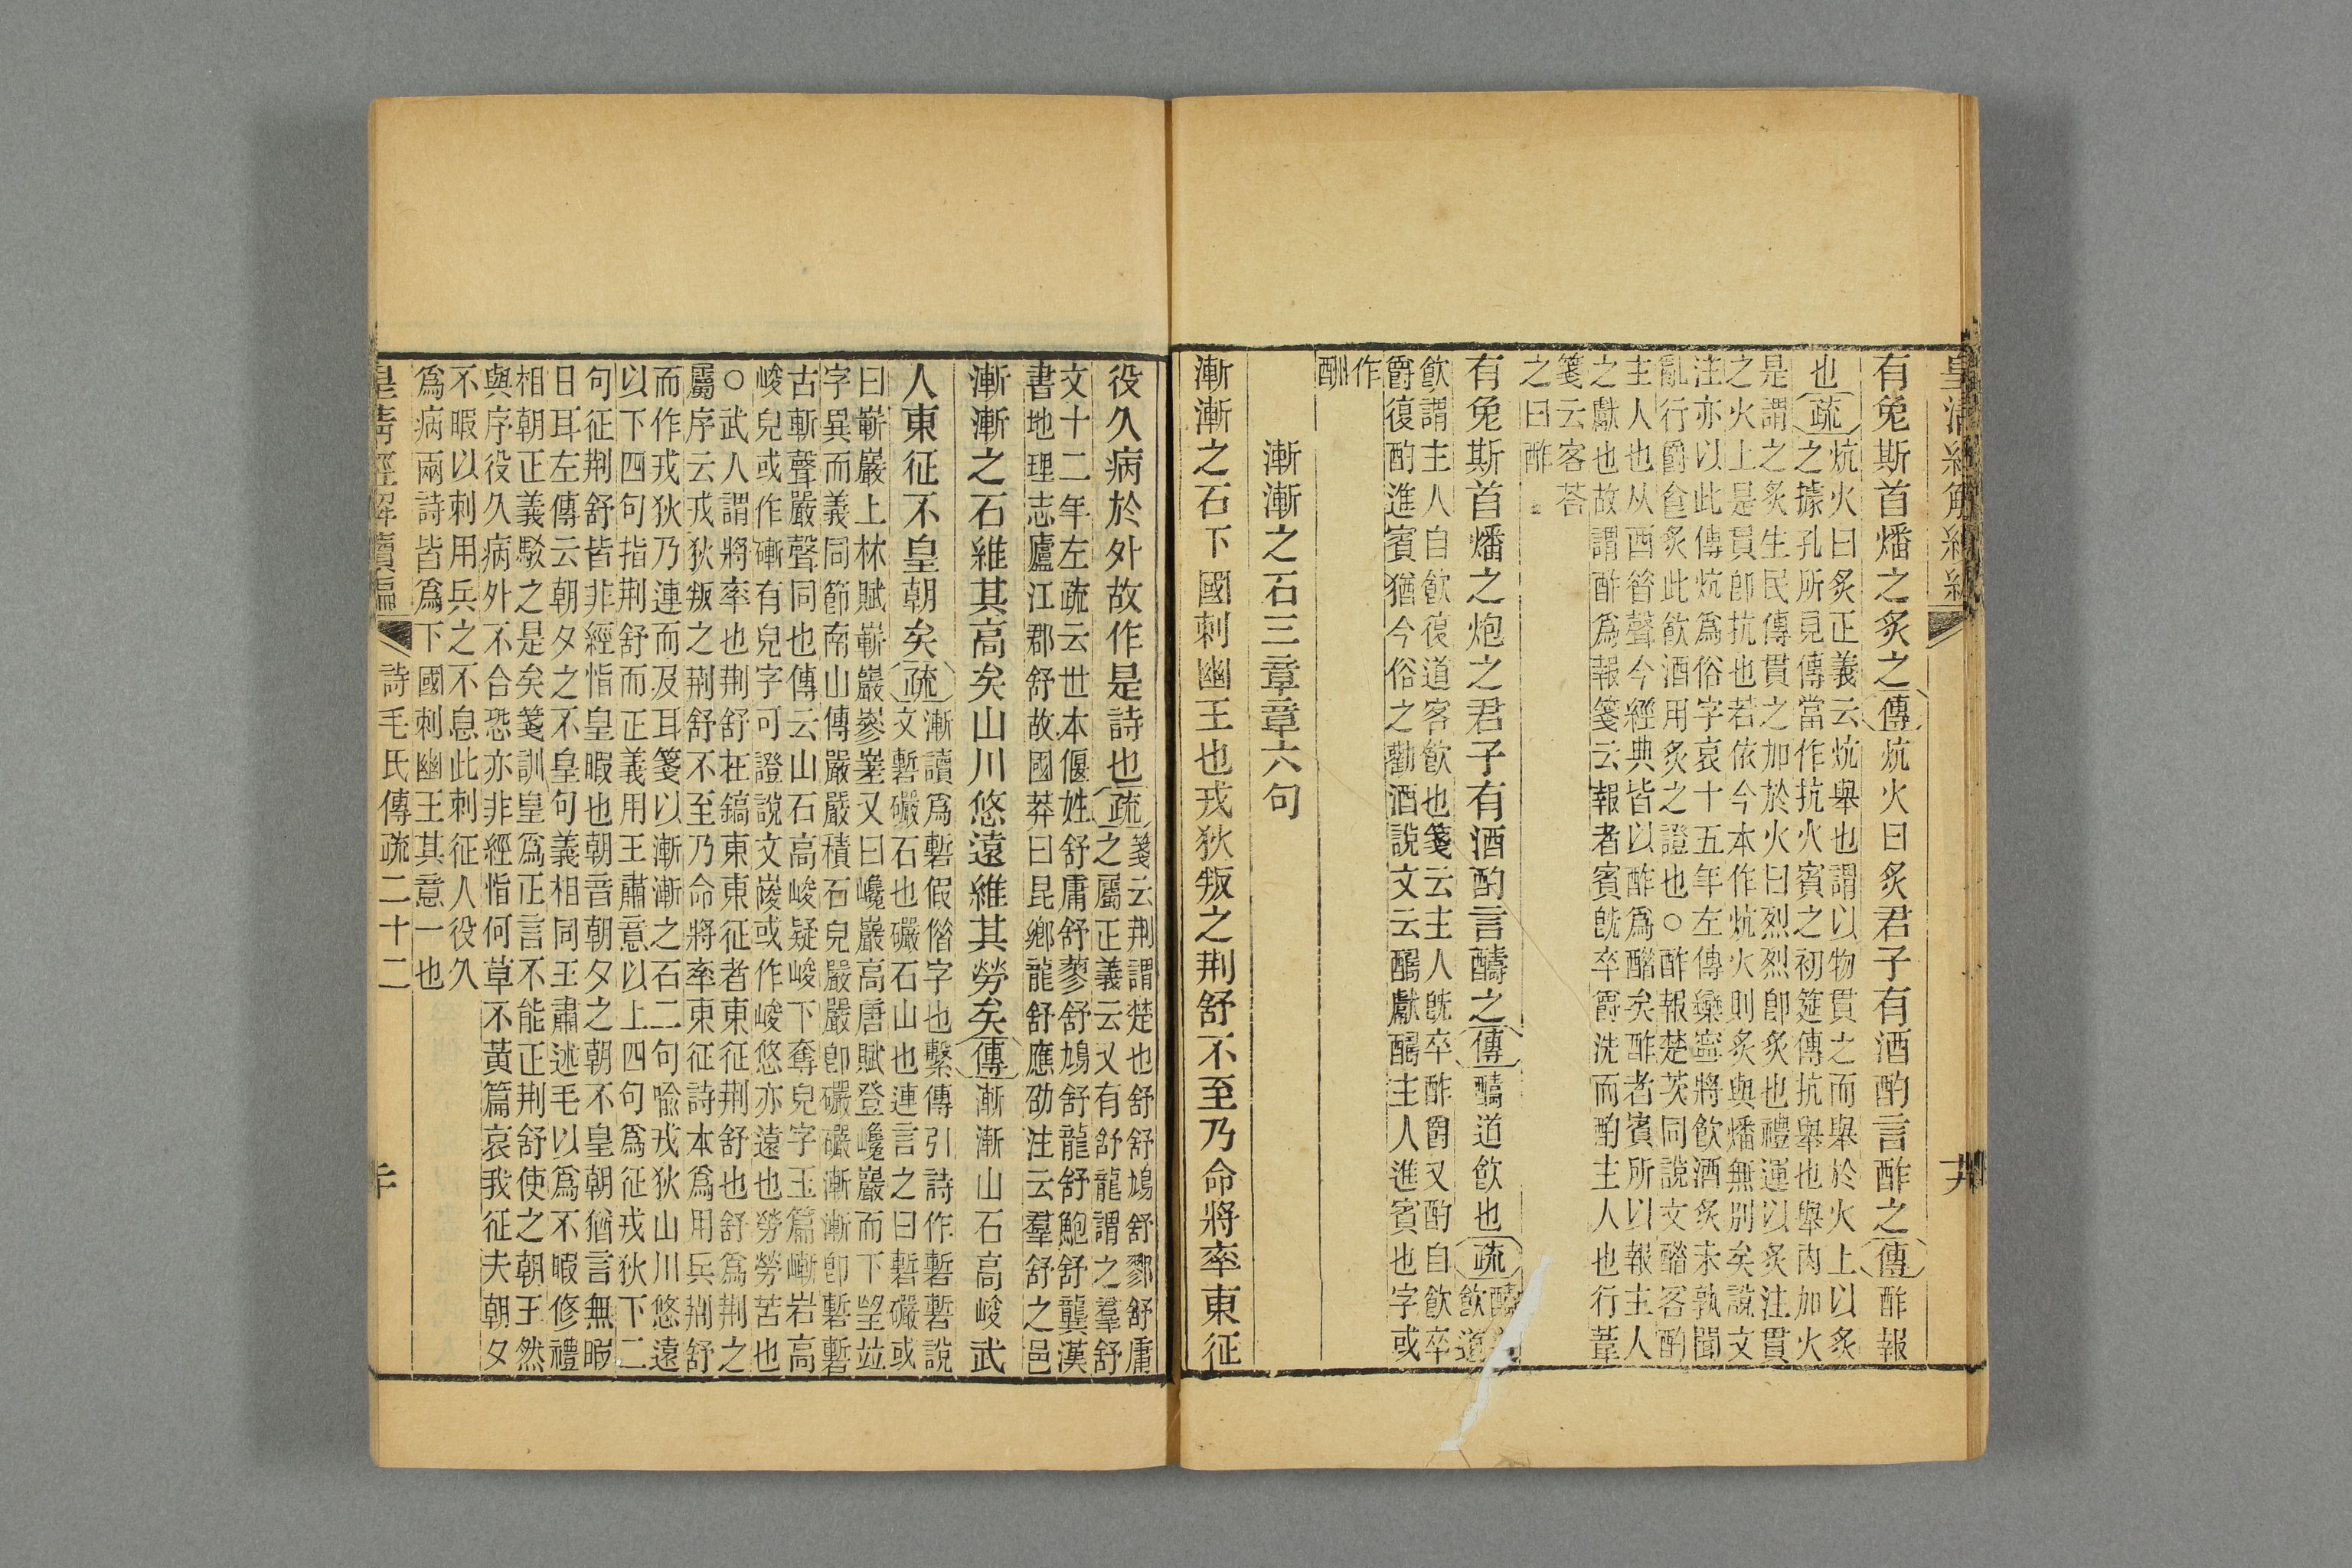 有兔斯首燔之炙之傳炕火曰炙君子有酒酌言酢之傳酢報
也疏炕火曰炙正義云炕舉也謂以物貫之而舉於火上以炙
之據孔所見傳當作抗火賓之初筵傳抗舉也舉肉加火
是謂之炙生民傳貫之加於火曰烈烈卽炙也禮運以炙注貫
之火上是貫卽抗也若依今本作炕火則炙與燔無別矣說文
注亦以此傳炕爲俗字哀十五年左傳欒寧將飮酒炙未孰聞
亂行爵食炙此飮酒用炙之證也○酢報楚茨同說文醋客酌
主人也从酉㫺聲今經典皆以酢爲醋矣酢者賓所以報主人
之獻也故謂酢爲報箋云報者賓旣卒爵洗而酌主人也行葦
箋云客荅
之曰酢
有兔斯首燔之炮之君子有酒酌言醻之傳醻道飮也疏
飮道
飮謂主人自飮復道客飮也箋云主人旣卒酢爵又酌自飮卒
爵復酌進賓猶今俗之勸酒說文云醻獻醻主人進賓也字或
作
酬
漸漸之石三章章六句
漸漸之石下國刺幽王也戎狄叛之荆舒不至乃命將率東征
役久病於外故作是詩也疏箋云荆謂楚也舒舒鳩舒鄝舒庸
之屬正義云又有舒龍謂之羣舒
文十二年左疏云世本偃姓舒庸舒蓼舒鳩舒龍舒鮑舒龔漢
書地理志廬江郡舒故國莽曰昆鄉龍舒應劭注云羣舒之邑
漸漸之石維其高矣山川悠遠維其勞矣傳漸漸山石高峻武
人東征不皇朝矣疏漸讀爲塹假偺字也繫傳引詩作塹塹說
文塹礹石也礹石山也連言之曰塹礹或
曰嶄巖上林賦嶄巖㟥嵳又曰巉巖高唐賦登巉巖而下望竝
字異而義同節南山傳嚴嚴積石皃嚴嚴卽礹礹漸漸卽塹塹
古斬聲嚴聲同也傳云山石高峻疑峻下奪皃字玉篇嶃岩高
峻皃或作磛有皃字可證說文㟞或作峻悠亦遠也勞勞苦也
○武人謂將率也荆舒在鎬東東征者東征荆舒也舒爲荆之
屬序云戎狄叛之荆舒不至乃命將率東征詩本爲用兵荆舒
而作戎狄乃連而及耳箋以漸漸之石二句喩戎狄山川悠遠
以下四句指荆舒而正義用王肅意以上四句爲征戎狄下二
句征荆舒皆非經恉皇暇也朝音朝夕之朝不皇朝猶言無暇
日耳左傳云朝夕之不皇句義相同王肅述毛以爲不暇修禮
相朝正義駁之是矣箋訓皇爲正言不能正荆舒使之朝王然
與序役久病外不合恐亦非經恉何草不黃篇哀我征夫朝夕
不暇以刺用兵之不息此刺征人役久
爲病兩詩皆爲下國刺幽王其意一也
皇淸經解續編 詩毛氏傳疏二十二